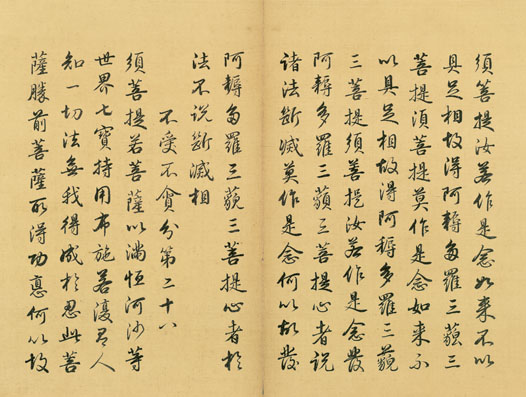 須菩提汝若作是念如來不以
具足相故得阿耨多羅三藐三
菩提須菩提莫作是念如來不
以具足相故得阿耨多羅三藐
三菩提須菩提汝若作是念發
阿耨多羅三藐三菩提心者說
諸法斷滅莫作是念何以故發
阿耨多羅三藐三菩提心者於
法不說斷滅相
不受不貪分第二十八
須菩提若菩薩以滿恒河沙等
世界七寶持用布施若復有人
知一切法無我得成於忍此菩
薩勝前菩薩所得功德何以故